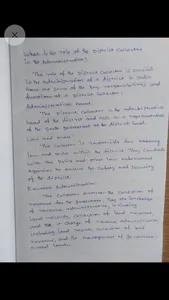 What is the role of the District Collector
in the Administration?
"The role of the District Collector is crucial
in the administration of a district in India
Here are some of the key responsibilities and
functions of a District Collector:
Administrative Head:
The District Collector is the administrative
head of the district and acts as a representative
of the state government at the district level.
Law and order:
The Collector is responsible for keeping
law and order within the district. They coordinate
with the police and other law enforcement
agencies to ensure the safety and security
of the district.
Revenue Administration:
The Collector oversees the collection of
revenue for the government. They are in charge
of revenue administration, including
land records, collection of land revenue,
and the in charge of revenue administration,
including land records, collection of land
revenue, and the management of government-
owned lands.